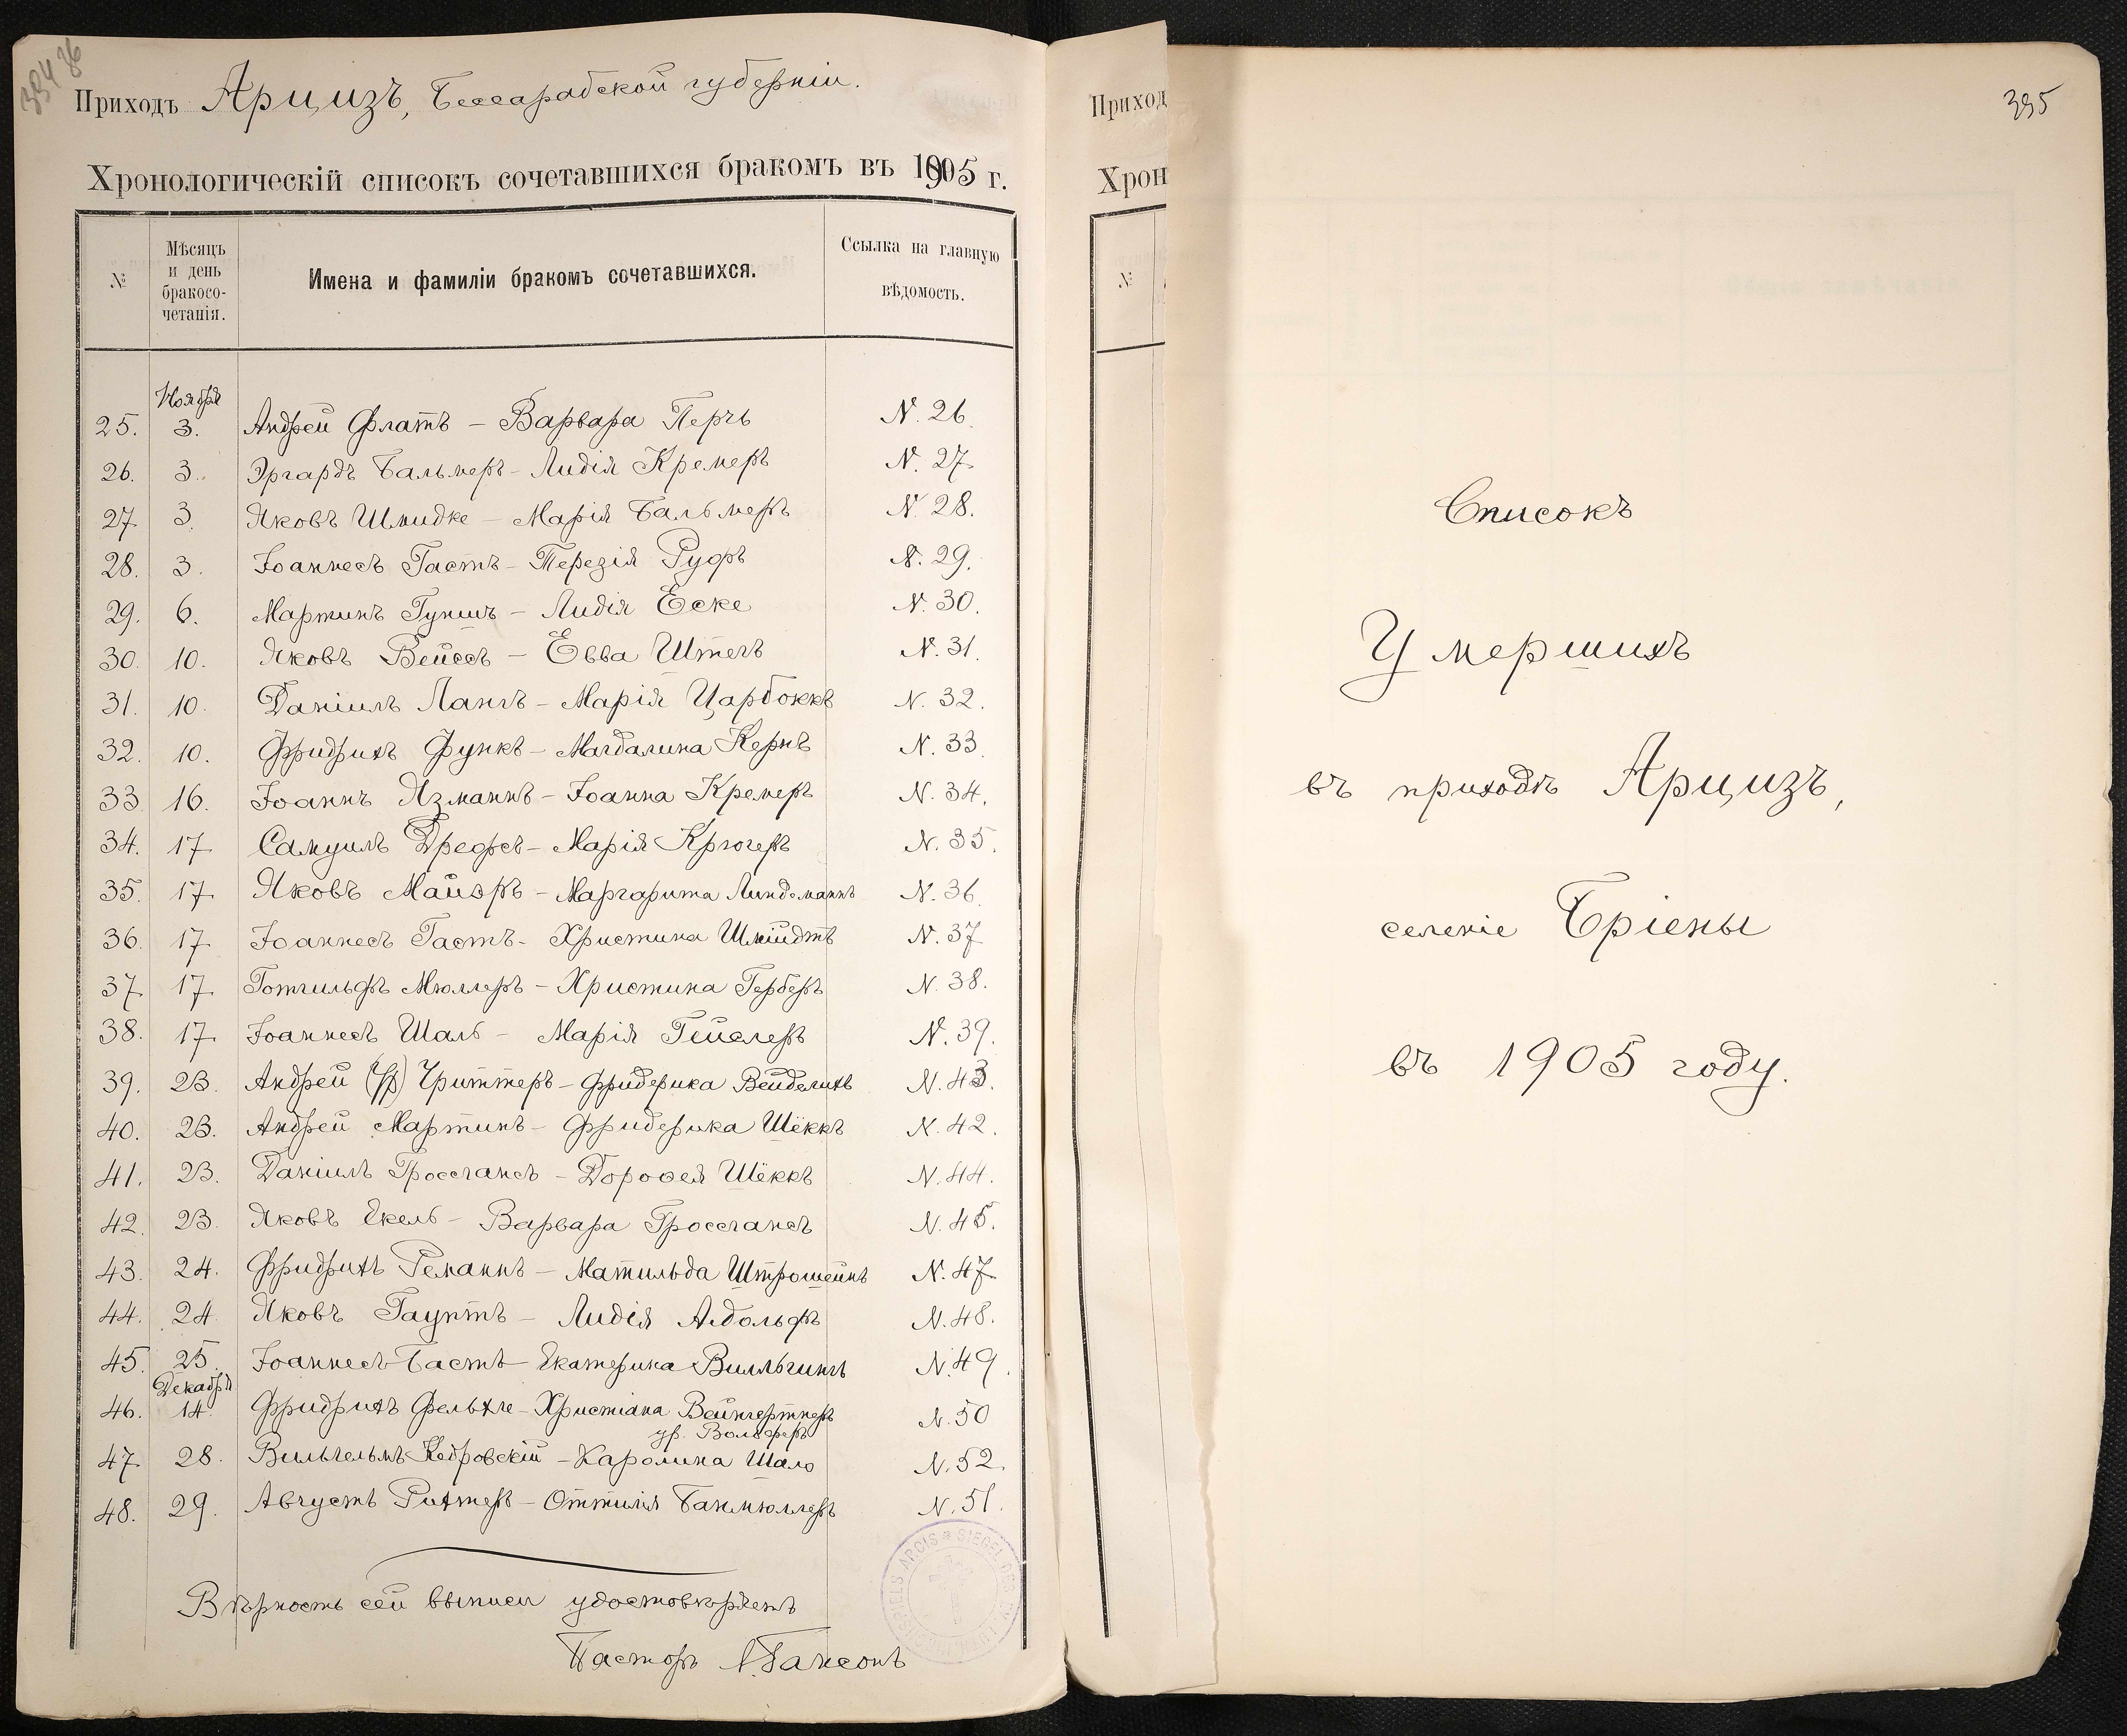 394 об
Приходъ Арцизъ, Бессарабской губерніи.
Хронологическій списокъ сочетавшихся бракомъ въ 1905 г.
№
Мѣсяцъ
и день
бракосо-
четанія.
Имена и фамиліи бракомъ сочетавшихся.
Ссылка на главную
вѣдомость.
Ноября
25. 3. Андрей Флатъ - Варвара Перчъ N. 26.
26. 3. Эргардъ Бальмеръ - Лидія Кремеръ N. 27.
27. 3. Яковъ Шмидке - Марія Бальмеръ N. 28.
28. 3. Іоаннесъ Гастъ - Терезія Руфъ N. 29.
29. 6. Мартинъ - Лидія Еске N. 30.
30. 10. Яковъ Вейссъ - Евва N. 31.
31. 10. Даніилъ Лангъ - Марія Царбоккъ N. 32.
32. 10. Фридрихъ Функъ - Магдалина Кернъ N. 33.
33. 16. Іоаннъ Язманнъ - Іоанна Кремеръ N. 34.
34. 17. Самуилъ Дрефсъ - Марія Крюгеръ N. 35.
35. 17. Яковъ Майэръ - Маргарита Линдеманнъ N. 36.
36. 17. Іоаннесъ Гастъ - Христина Шмидтъ N. 37
37. 17. Готгильфъ Мюллеръ - Христина Герберъ N. 38.
38. 17. Іоаннесъ Шаль - Марія Гейслеръ N. 39.
39. 23. Андрей Триттеръ - Фридерика Вейделихъ N. 43.
40. 23. Андрей Мартинъ - Фридерика Шёккъ N. 42.
41. 23. Даніилъ Гроссгансъ - Дороѳея Шёккъ N. 44.
42. 23. Яковъ Екель - Варвара Гроссгансъ N. 45.
43. 24. Фридрихъ Реманнъ - Матильда Штрошейнъ N. 47
44. 24. Яковъ Гауптъ - Лидія Адольфъ N. 48.
45. 25. Іоаннесъ Бастъ - Екатерина Вилльгингъ N. 49.
Декабря
46. 14. Фридрихъ Фельхле - Христіана Вейнгертнеръ N. 50
ур. Вольферъ
47. 28. Вильгельмъ Кедровскій - Каролина Шаль N. 52.
48. 29. Августъ Рихтеръ - Оттилія Банмюллеръ N. 51.
Вѣрность сей выписи удостовѣряетъ
Пасторъ А. Гансонъ
Приход
Хрон
№
395
Списокъ
Умершихъ
въ приходѣ Арцизъ,
селеніе Бріены
въ 1905 году.